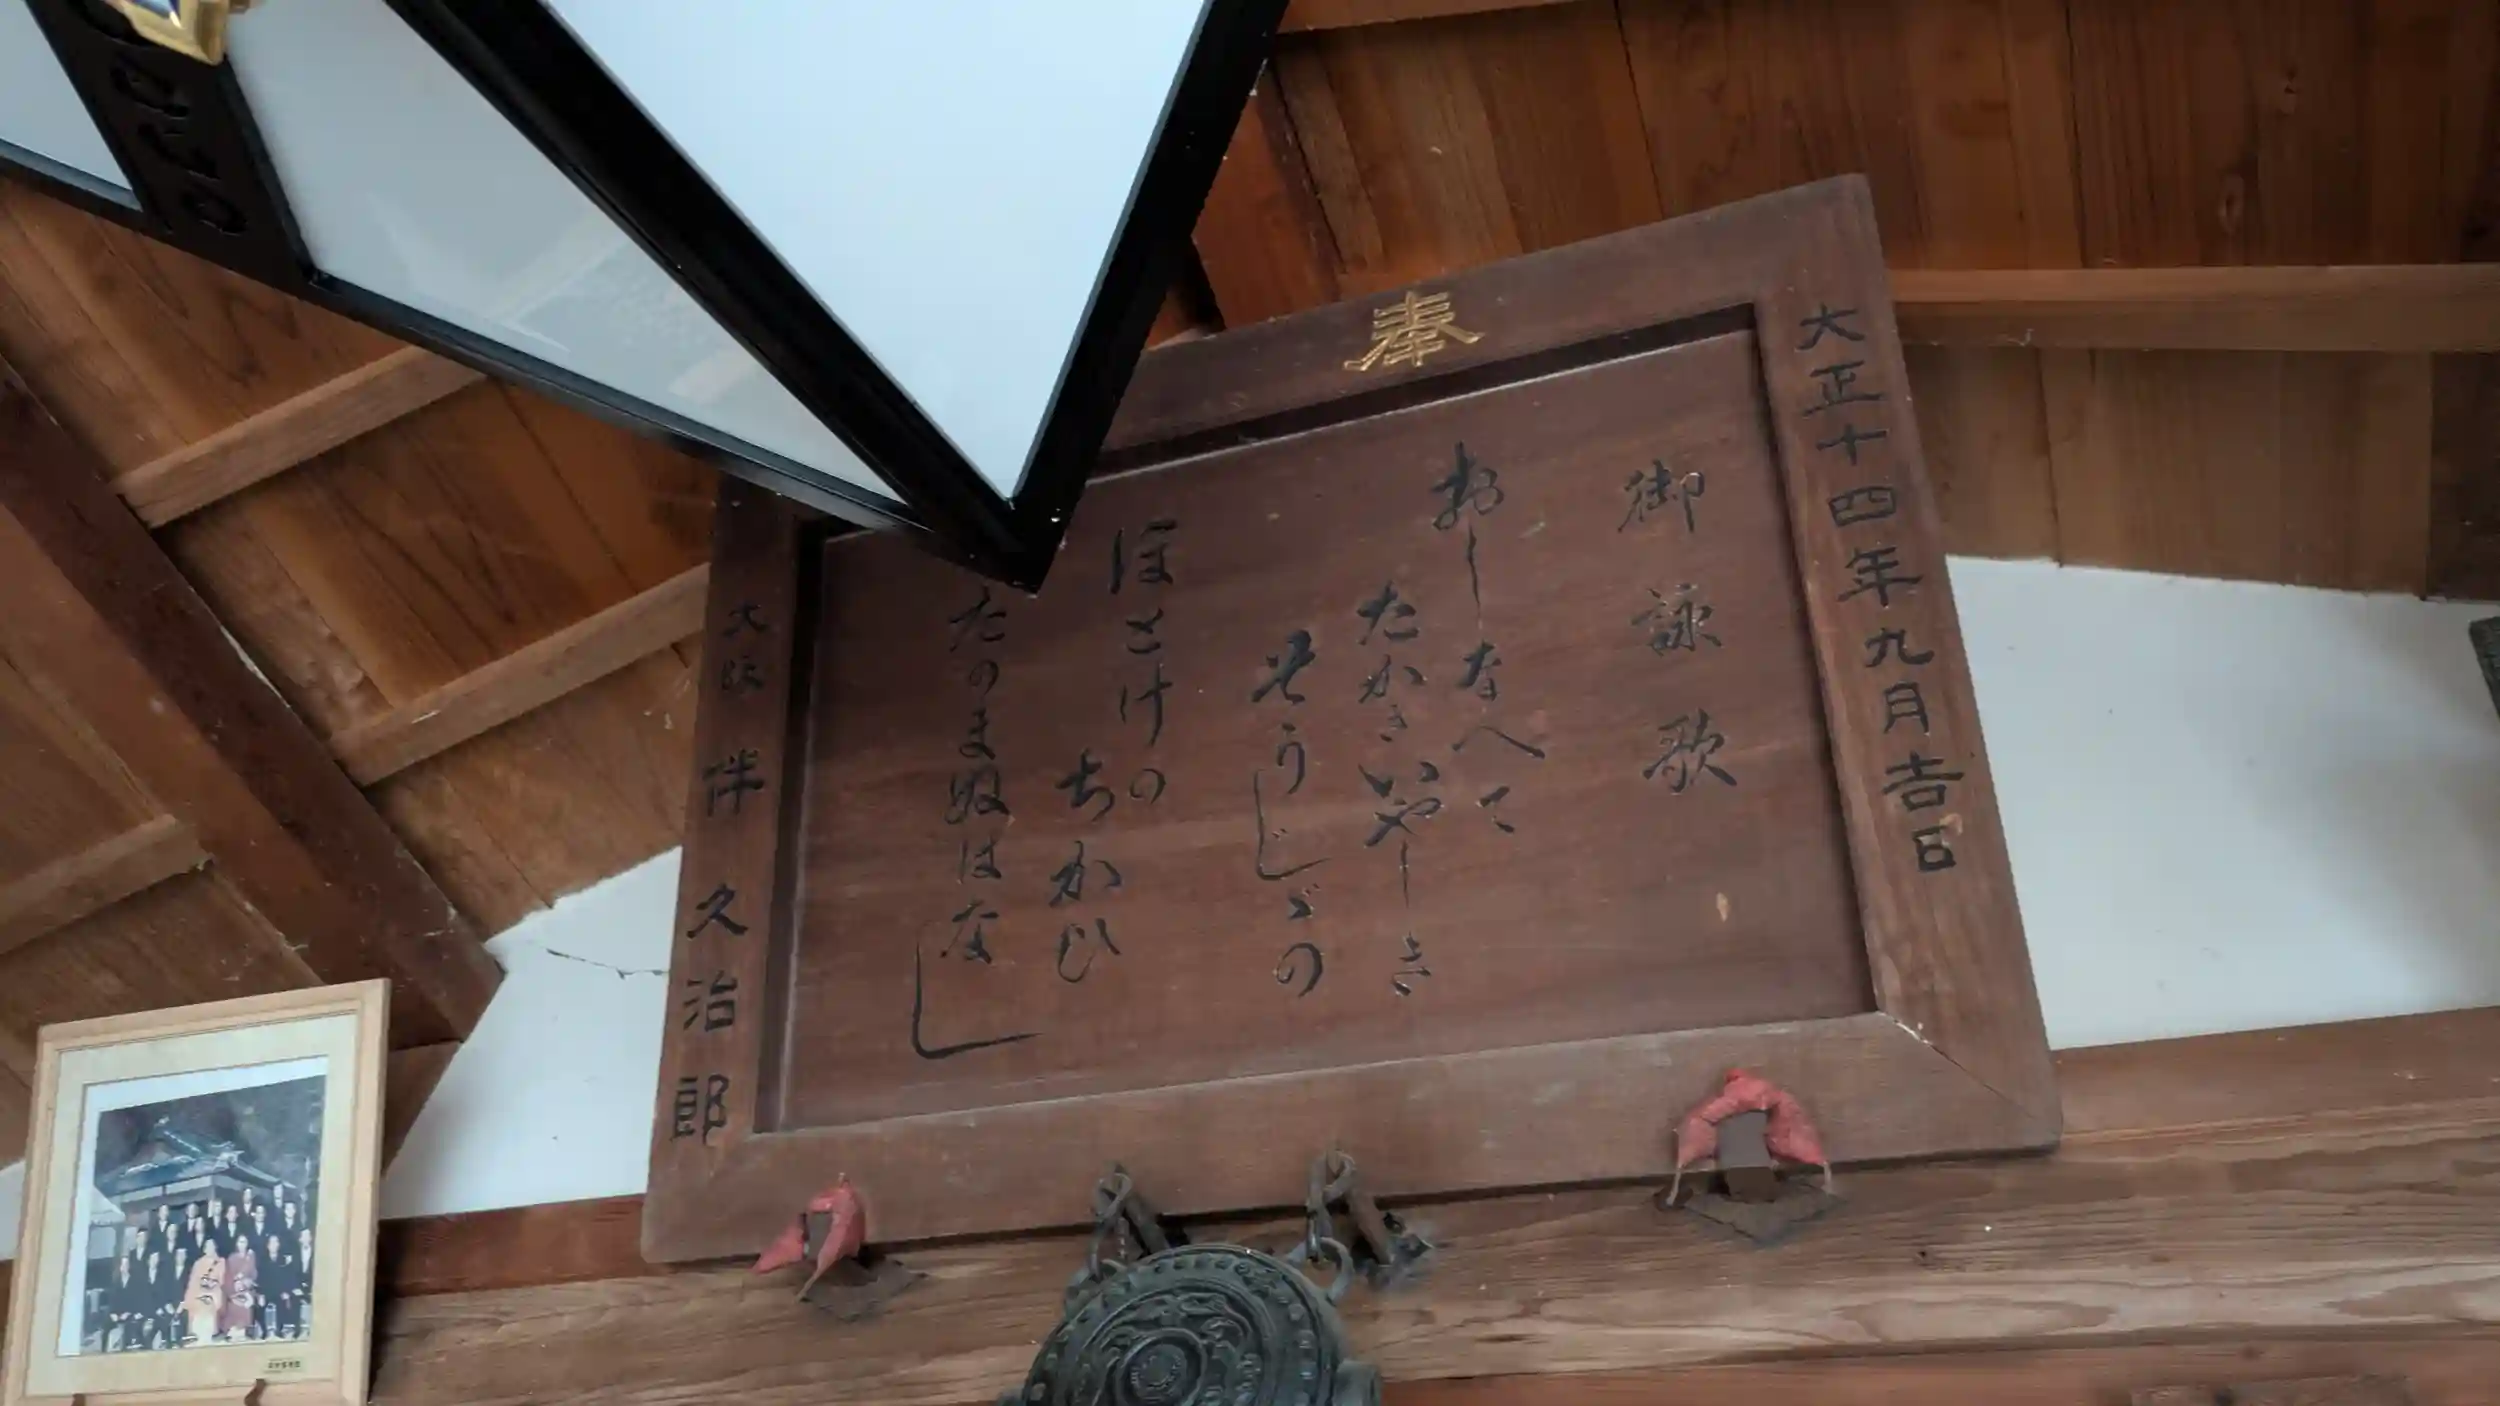 奉
大正十四年九月吉日
御詠歌
おしなへて
たかきいやしき
そうじゞの
ほとけの
ちかひ
たのまぬはなし
大阪 伴 久治郎